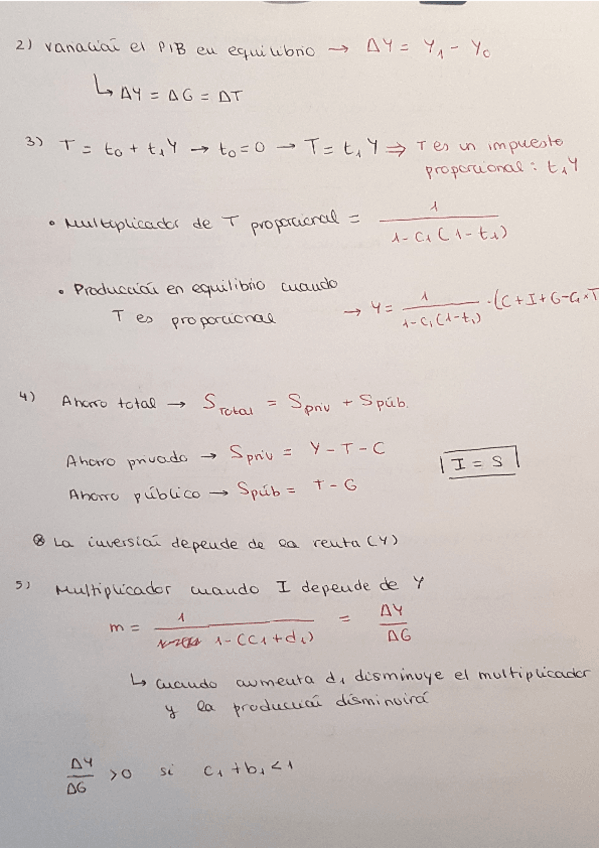 2) Variación el PIB en equilibrio → ΔY = Y₁ - Y₀
↳ ΔY = ΔG = ΔT
3) T = t₀ + t₁Y → t₀ = 0 → T = t₁Y ⇒ T es un impuesto
proporcional: t₁Y
• Multiplicador de T proporcional = 1 / (1 - C₁(1 - t₁))
• Producción en equilibrio cuando
T es proporcional → Y = 1 / (1 - C₁(1 - t₁)) · (C + I + G - C₁ × T
4) Ahorro total → S Total = S priv + S púb.
Ahorro privado → S priv = Y - T - C
I = S
Ahorro público → S púb = T - G
⊗ La inversión depende de la renta (Y)
5) Multiplicador cuando I depende de Y
m = 1 / (1 - (C₁ + d₁)) = ΔY / ΔG
↳ cuando aumenta d₁ disminuye el multiplicador
y la producción disminuirá
ΔY / ΔG > 0 si C₁ + b₁ < 1